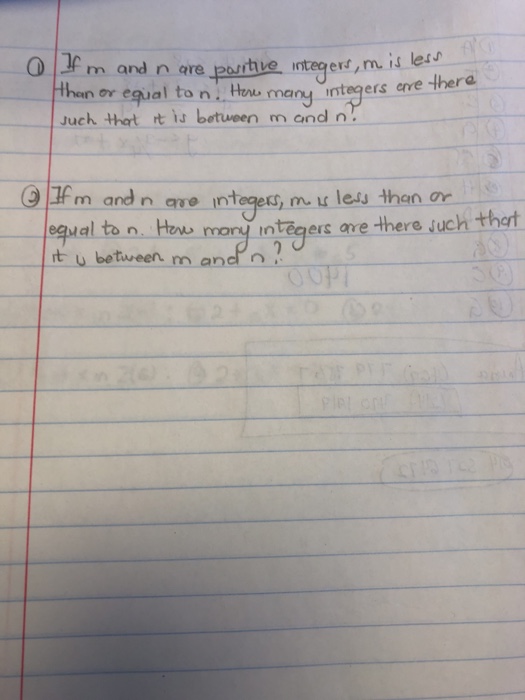 ① If m and n are positive integers, m is less
than or equal to n. How many integers are there
such that it is between m and n?
② If m and n are integers, m is less than or
equal to n. How many integers are there such that
it is between m and n?